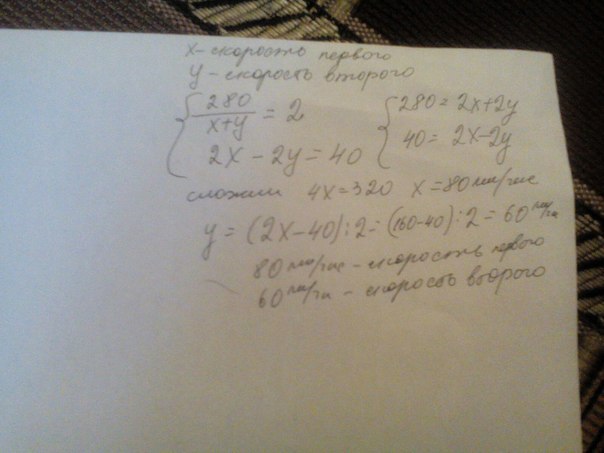 x - скорость первого
y - скорость второго
{ 280/(x+y) = 2
2x - 2y = 40
{ 280 = 2x+2y
40 = 2x-2y
сложили 4x=320 x=80 км/час
y = (2x-40):2 = (160-40):2 = 60 км/ч
80 км/час - скорость первого
60 км/ч - скорость второго